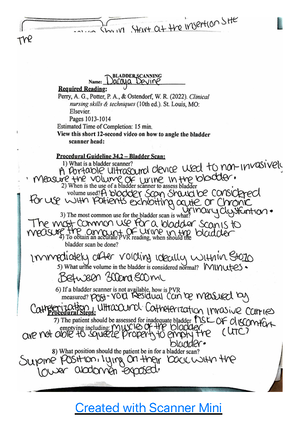 Start at the insertion site
The
BLADDER SCANNING
Name: Devine
Required Reading:
Perry, A. G., Potter, P. A., & Ostendorf, W. R. (2022). Clinical
nursing skills & techniques (10th ed.). St. Louis, MO:
Elsevier.
Pages 1013-1014
Estimated Time of Completion: 15 min.
View this short 12-second video on how to angle the bladder
scanner head:
Procedural Guideline 34.2 – Bladder Scan:
1) What is a bladder scanner?
A portable ultrasound device used to non-invasively
measure the volume of urine in the bladder.
2) When is the use of a bladder scanner to assess bladder
volume used? A bladder scan should be considered
for use with patients exhibiting acute or chronic
urinary dysfunction.
3) The most common use for the bladder scan is what?
The most common use for a bladder scan is to
measure the amount of urine in the bladder
4) To obtain an accurate PVR reading, when should the
bladder scan be done?
Immediately after voiding ideally within 5 to 20
minutes.
5) What urine volume in the bladder is considered normal?
Between 300 and 500 mL
6) If a bladder scanner is not available, how is PVR
measured? Post-void Residual can be measured by
Catheterization, Ultrasound Catheterization invasive carries
risk of discomfort
(UTI)
Procedural Steps:
7) The patient should be assessed for inadequate bladder
emptying including: muscles of the bladder
are not able to squeeze properly to empty the
bladder.
8) What position should the patient be in for a bladder scan?
Supine position, lying on the back with the
lower abdomen exposed.
Created with Scanner Mini